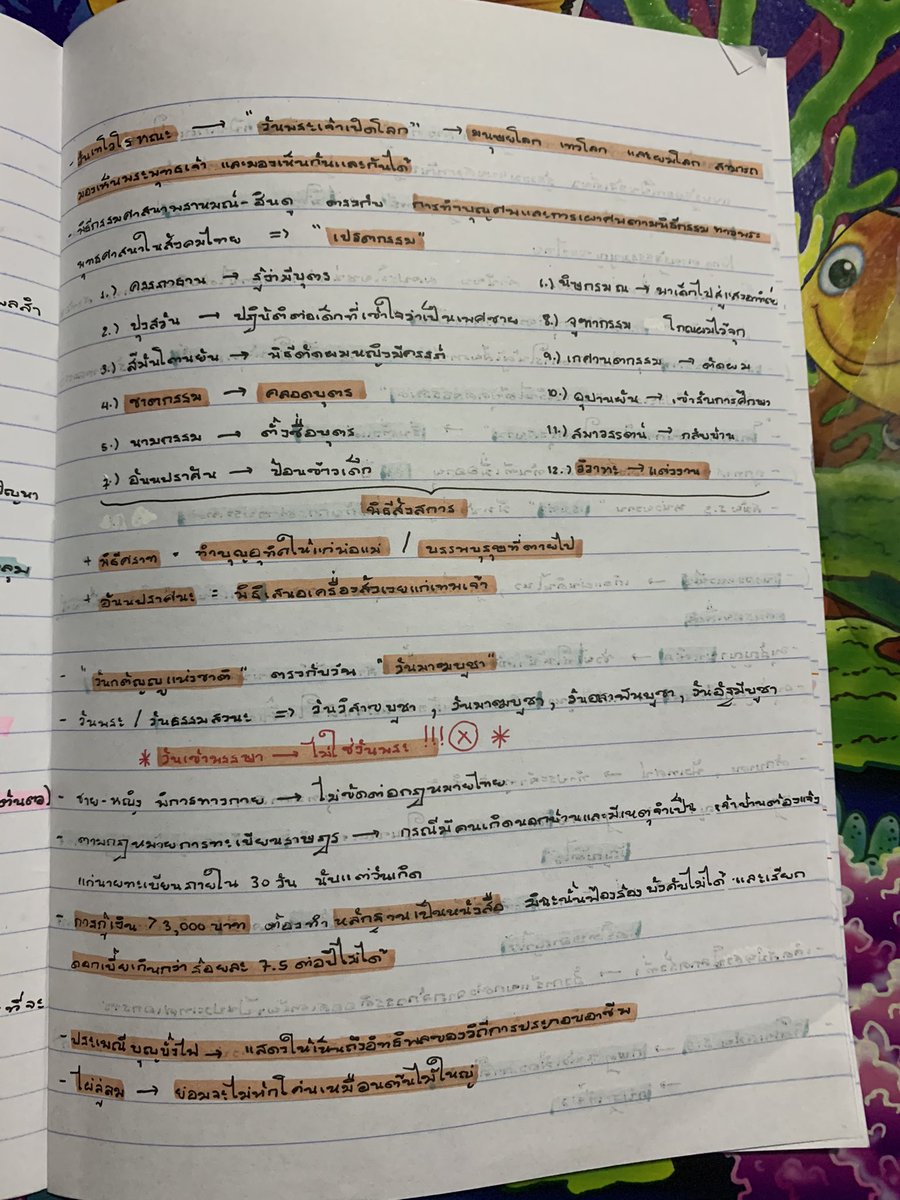 - วันเทโวโรหณะ → "วันพระเจ้าเปิดโลก" → มนุษยโลก เทวโลก และยมโลก สามารถ
มองเห็นพระพุทธเจ้า และมองเห็นกันและกันได้
- พิธีกรรมศาสนาพราหมณ์-ฮินดู ตรงกับ การทำบุญศพและการเผาศพตามพิธีกรรม ทางพระ
พุทธศาสนาในสังคมไทย => "เปรตกรรม"
1.) ครรภาธาน → รู้ว่ามีบุตร
2.) ปุงสวัน → ปฏิบัติต่อเด็กที่เข้าใจว่าเป็นเพศชาย
3.) สีมันโตนยัน → พิธีตัดผมหญิงมีครรภ์
4.) ชาตกรรม → คลอดบุตร
5.) นามกรรม → ตั้งชื่อบุตร
7.) อันนปราศิน → ป้อนข้าวเด็ก
6.) นิษกรมณ → พาเด็กไปสู่แสงอาทิตย์
8.) จูฑากรรม โกนผมไว้จุก
9.) เกศานตกรรม → ตัดผม
10.) อุปานยัน → เข้ารับการศึกษา
11.) สมาวรรตน์ → กลับบ้าน
12.) วิวาหะ → แต่งงาน
พิธีสังสการ
+ พิธีศราท = ทำบุญอุทิศให้แก่พ่อแม่ / บรรพบุรุษที่ตายไป
+ อันนปราศนะ = พิธีเสนอเครื่องสังเวยแก่เทพเจ้า
- "วันกตัญญูแห่งชาติ" ตรงกับวัน "วันมาฆบูชา"
- วันพระ / วันธรรมสวนะ => วันวิสาขบูชา , วันมาฆบูชา , วันอาสาฬหบูชา , วันอัฐมีบูชา
* วันเข้าพรรษา → ไม่ใช่วันพระ !!! X *
- ชาย-หญิง พิการทางกาย → ไม่ขัดต่อกฎหมายไทย
- ตามกฎหมายการทะเบียนราษฎร → กรณีมีคนเกิดนอกบ้านและมีเหตุจำเป็น เจ้าบ้านต้องแจ้ง
แก่นายทะเบียนภายใน 30 วัน นับแต่วันเกิด
- การกู้เงิน > 3,000 บาท ต้องทำ หลักฐานเป็นหนังสือ มิฉะนั้นฟ้องร้อง บังคับไม่ได้ และเรียก
ดอกเบี้ยเกินกว่า ร้อยละ 7.5 ต่อปีไม่ได้
- ประเพณีบุญบั้งไฟ → แสดงให้เห็นถึงอิทธิพลของวิถีการประกอบอาชีพ
- ไผ่ลู่ลม → ย่อมจะไม่หักโค่นเหมือนต้นไม้ใหญ่